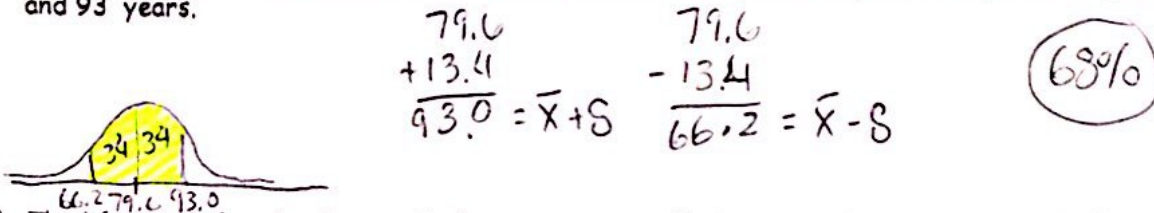 and 93 years.
79.6
+13.4
93.0 = x̄+S
79.6
-13.4
66.2 = x̄-S
68%
34 34
66.2 79.6 93.0